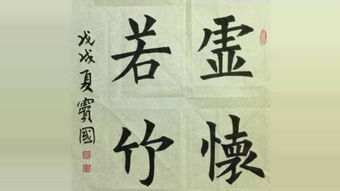 虚懷
若竹
戊戌夏寶國